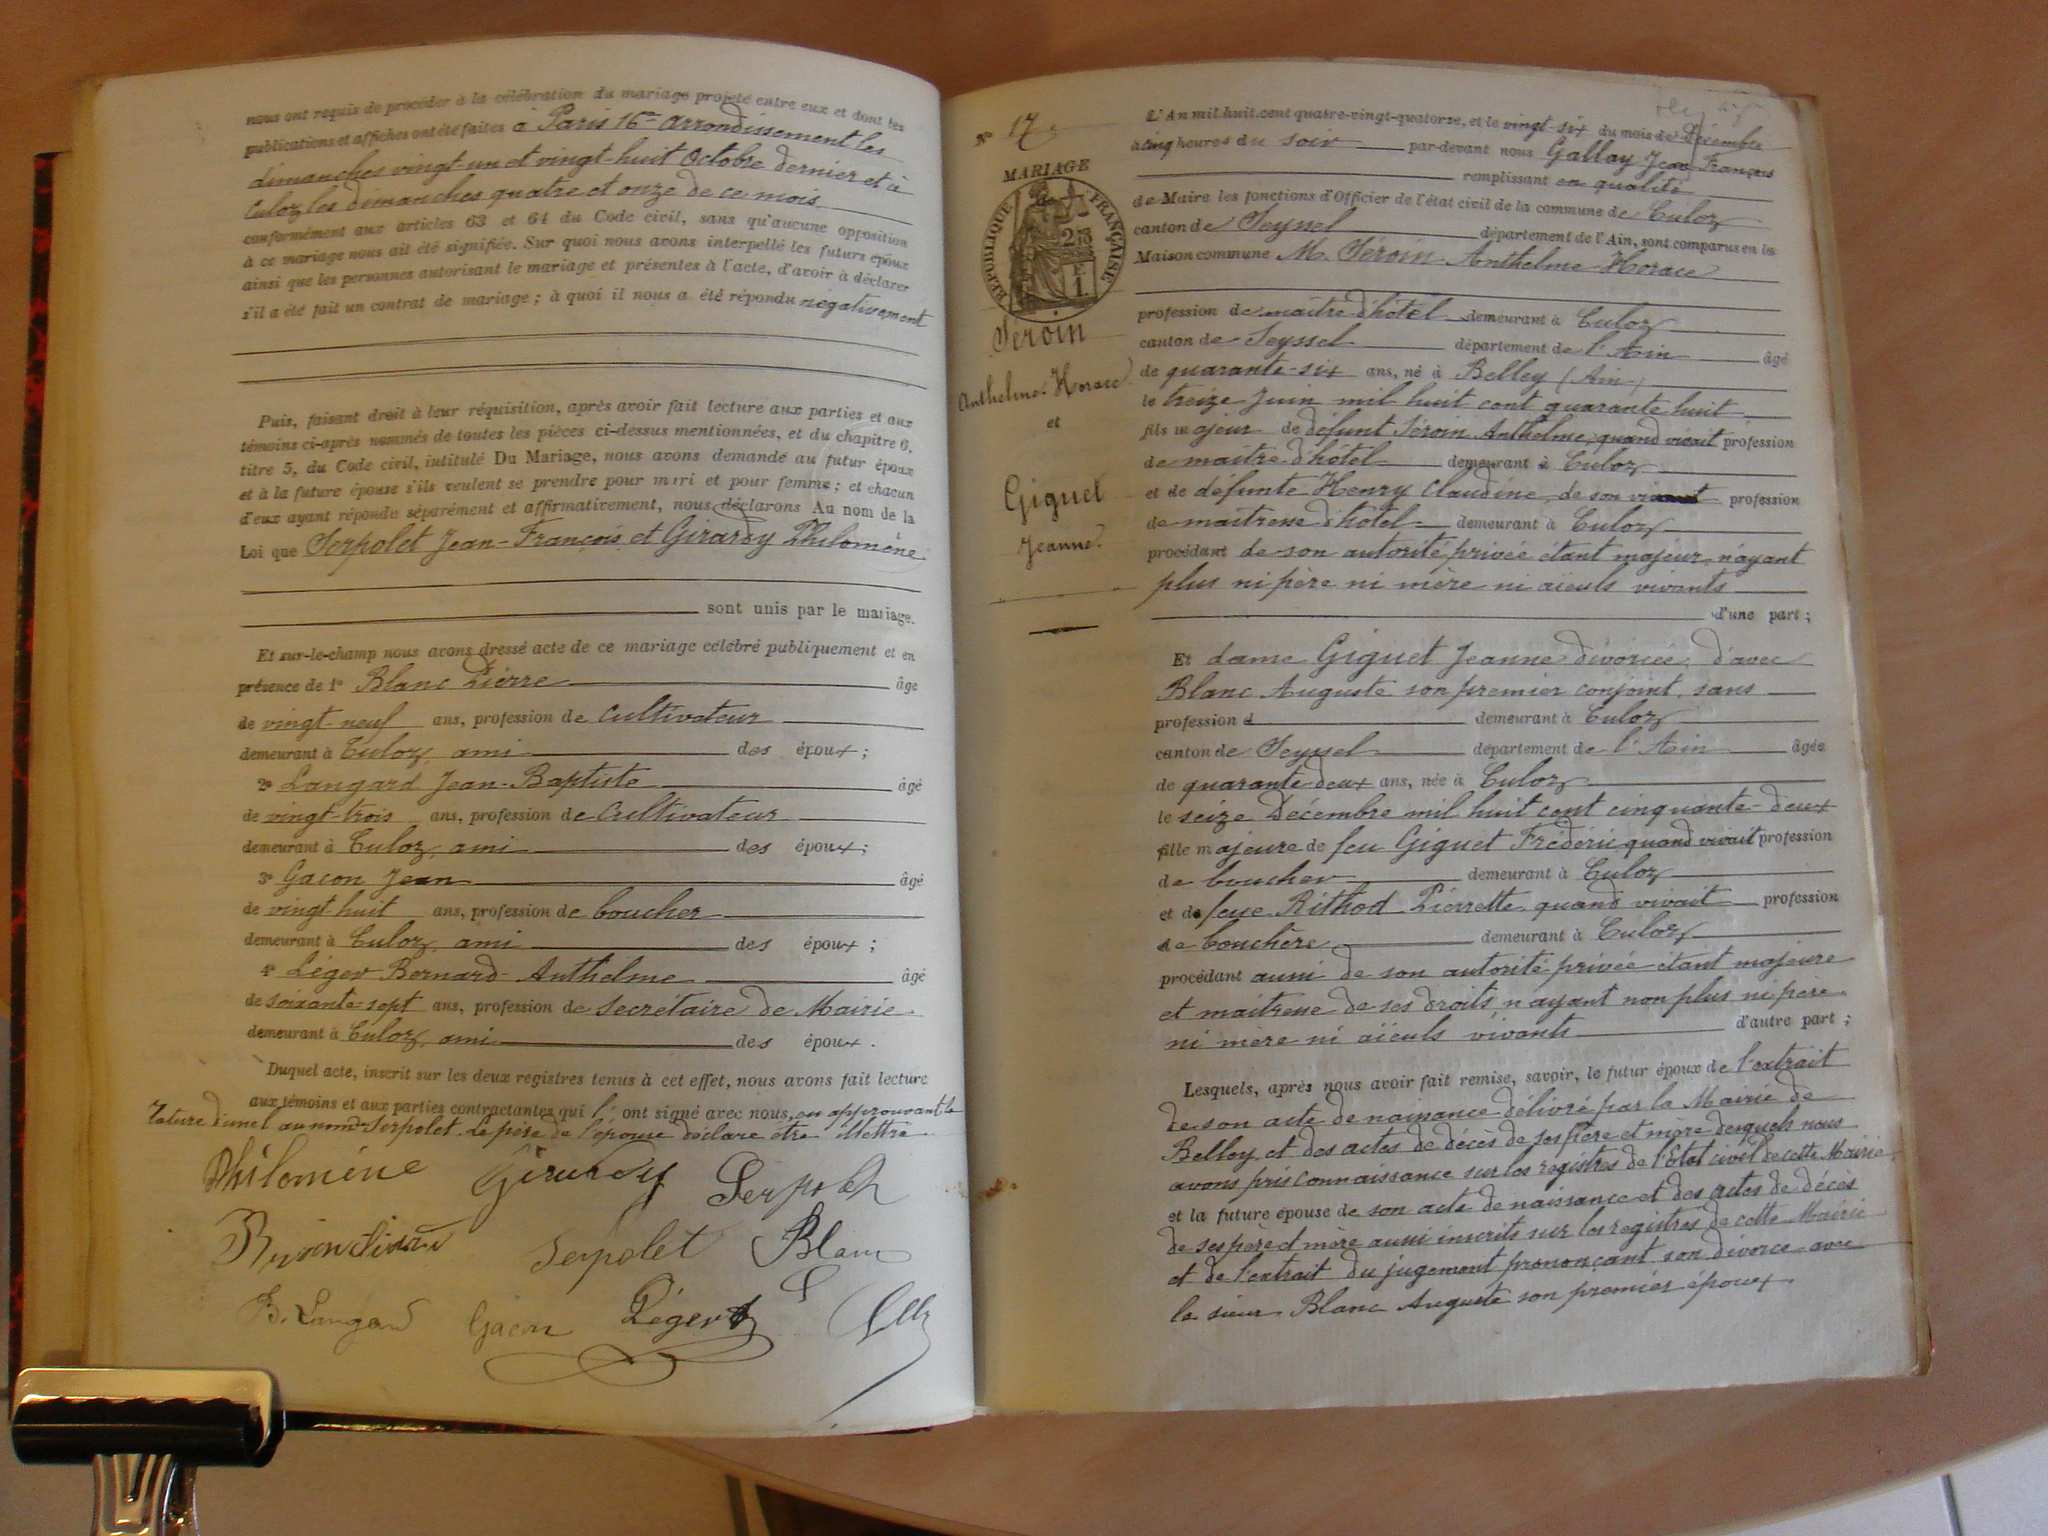 nous ont requis de procéder à la célébration du mariage projeté entre eux et dont les
publications et affiches ont été faites à Paris 16me arrondissement les
dimanches vingt-un et vingt-huit Octobre dernier et à
Culoz les dimanches quatre et onze de ce mois
conformément aux articles 63 et 64 du Code civil, sans qu'aucune opposition
à ce mariage nous ait été signifiée. Sur quoi nous avons interpellé les futurs époux
ainsi que les personnes autorisant le mariage et présentes à l'acte, d'avoir à déclarer
s'il a été fait un contrat de mariage ; à quoi il nous a été répondu négativement
Puis, faisant droit à leur réquisition, après avoir fait lecture aux parties et aux
témoins ci-après nommés de toutes les pièces ci-dessus mentionnées, et du chapitre 6,
titre 5, du Code civil, intitulé Du Mariage, nous avons demandé au futur époux
et à la future épouse s'ils veulent se prendre pour mari et pour femme ; et chacun
d'eux ayant répondu séparément et affirmativement, nous déclarons Au nom de la
Loi que Serpolet Jean-François et Girardy Philomène
sont unis par le mariage.
Et sur-le-champ nous avons dressé acte de ce mariage célébré publiquement et en
présence de 1° Blanc Pierre âgé
de vingt-neuf ans, profession de cultivateur
demeurant à Culoz, ami des époux ;
2° Langard Jean-Baptiste âgé
de vingt-trois ans, profession de cultivateur
demeurant à Culoz, ami des époux ;
3° Gacon Jean âgé
de vingt-huit ans, profession de boucher
demeurant à Culoz, ami des époux ;
4° Léger Bernard-Anthelme âgé
de soixante-sept ans, profession de secrétaire de Mairie
demeurant à Culoz, ami des époux.
Duquel acte, inscrit sur les deux registres tenus à cet effet, nous avons fait lecture
aux témoins et aux parties contractantes qui l' ont signé avec nous, en approuvant la
rature d'une l au nom de Serpolet. Le père de l'épouse déclare être illettré
Philomène Girardy Serpolet
Serpolet Blanc
B. Langard Gacon Léger
N° 17
MARIAGE
RÉPUBLIQUE FRANÇAISE
Séroin
Anthelme-Horace
et
Giguet
Jeanne.
L'An mil huit cent quatre-vingt-quatorze, et le vingt-six du mois de Décembre
à cinq heures du soir par-devant nous Gallay Jean François
remplissant en qualité
de Maire les fonctions d'Officier de l'état civil de la commune de Culoz
canton de Seyssel département de l'Ain, sont comparus en la
Maison commune M. Séroin Anthelme-Horace
profession de maître d'hôtel demeurant à Culoz
canton de Seyssel département de l'Ain âgé
de quarante-six ans, né à Belley (Ain)
le treize Juin mil huit cent quarante huit
fils majeur de défunt Séroin Anthelme, quand vivait profession
de maître d'hôtel demeurant à Culoz
et de défunte Henry Claudine, de son vivant profession
de maîtresse d'hôtel demeurant à Culoz
procédant de son autorité privée étant majeur, n'ayant
plus ni père ni mère ni aïeuls vivants
d'une part ;
Et dame Giguet Jeanne divorcée d'avec
Blanc Auguste son premier conjoint, sans
profession d demeurant à Culoz
canton de Seyssel département de l'Ain âgée
de quarante deux ans, née à Culoz
le seize Décembre mil huit cent cinquante-deux
fille majeure de feu Giguet Frédéric quand vivait profession
de boucher demeurant à Culoz
et de feue Rithod Pierrette quand vivait profession
de bouchère demeurant à Culoz
procédant aussi de son autorité privée étant majeure
et maîtresse de ses droits n'ayant non plus ni père
ni mère ni aïeuls vivants d'autre part ;
Lesquels, après nous avoir fait remise, savoir, le futur époux de l'extrait
de son acte de naissance délivré par la Mairie de
Belley et des actes de décès de ses père et mère desquels nous
avons pris connaissance sur les registres de l'Etat civil de cette Mairie
et la future épouse de son acte de naissance et des actes de décès
de ses père et mère aussi inscrits sur les registres de cette Mairie
et de l'extrait du jugement prononçant son divorce avec
le sieur Blanc Auguste son premier époux.